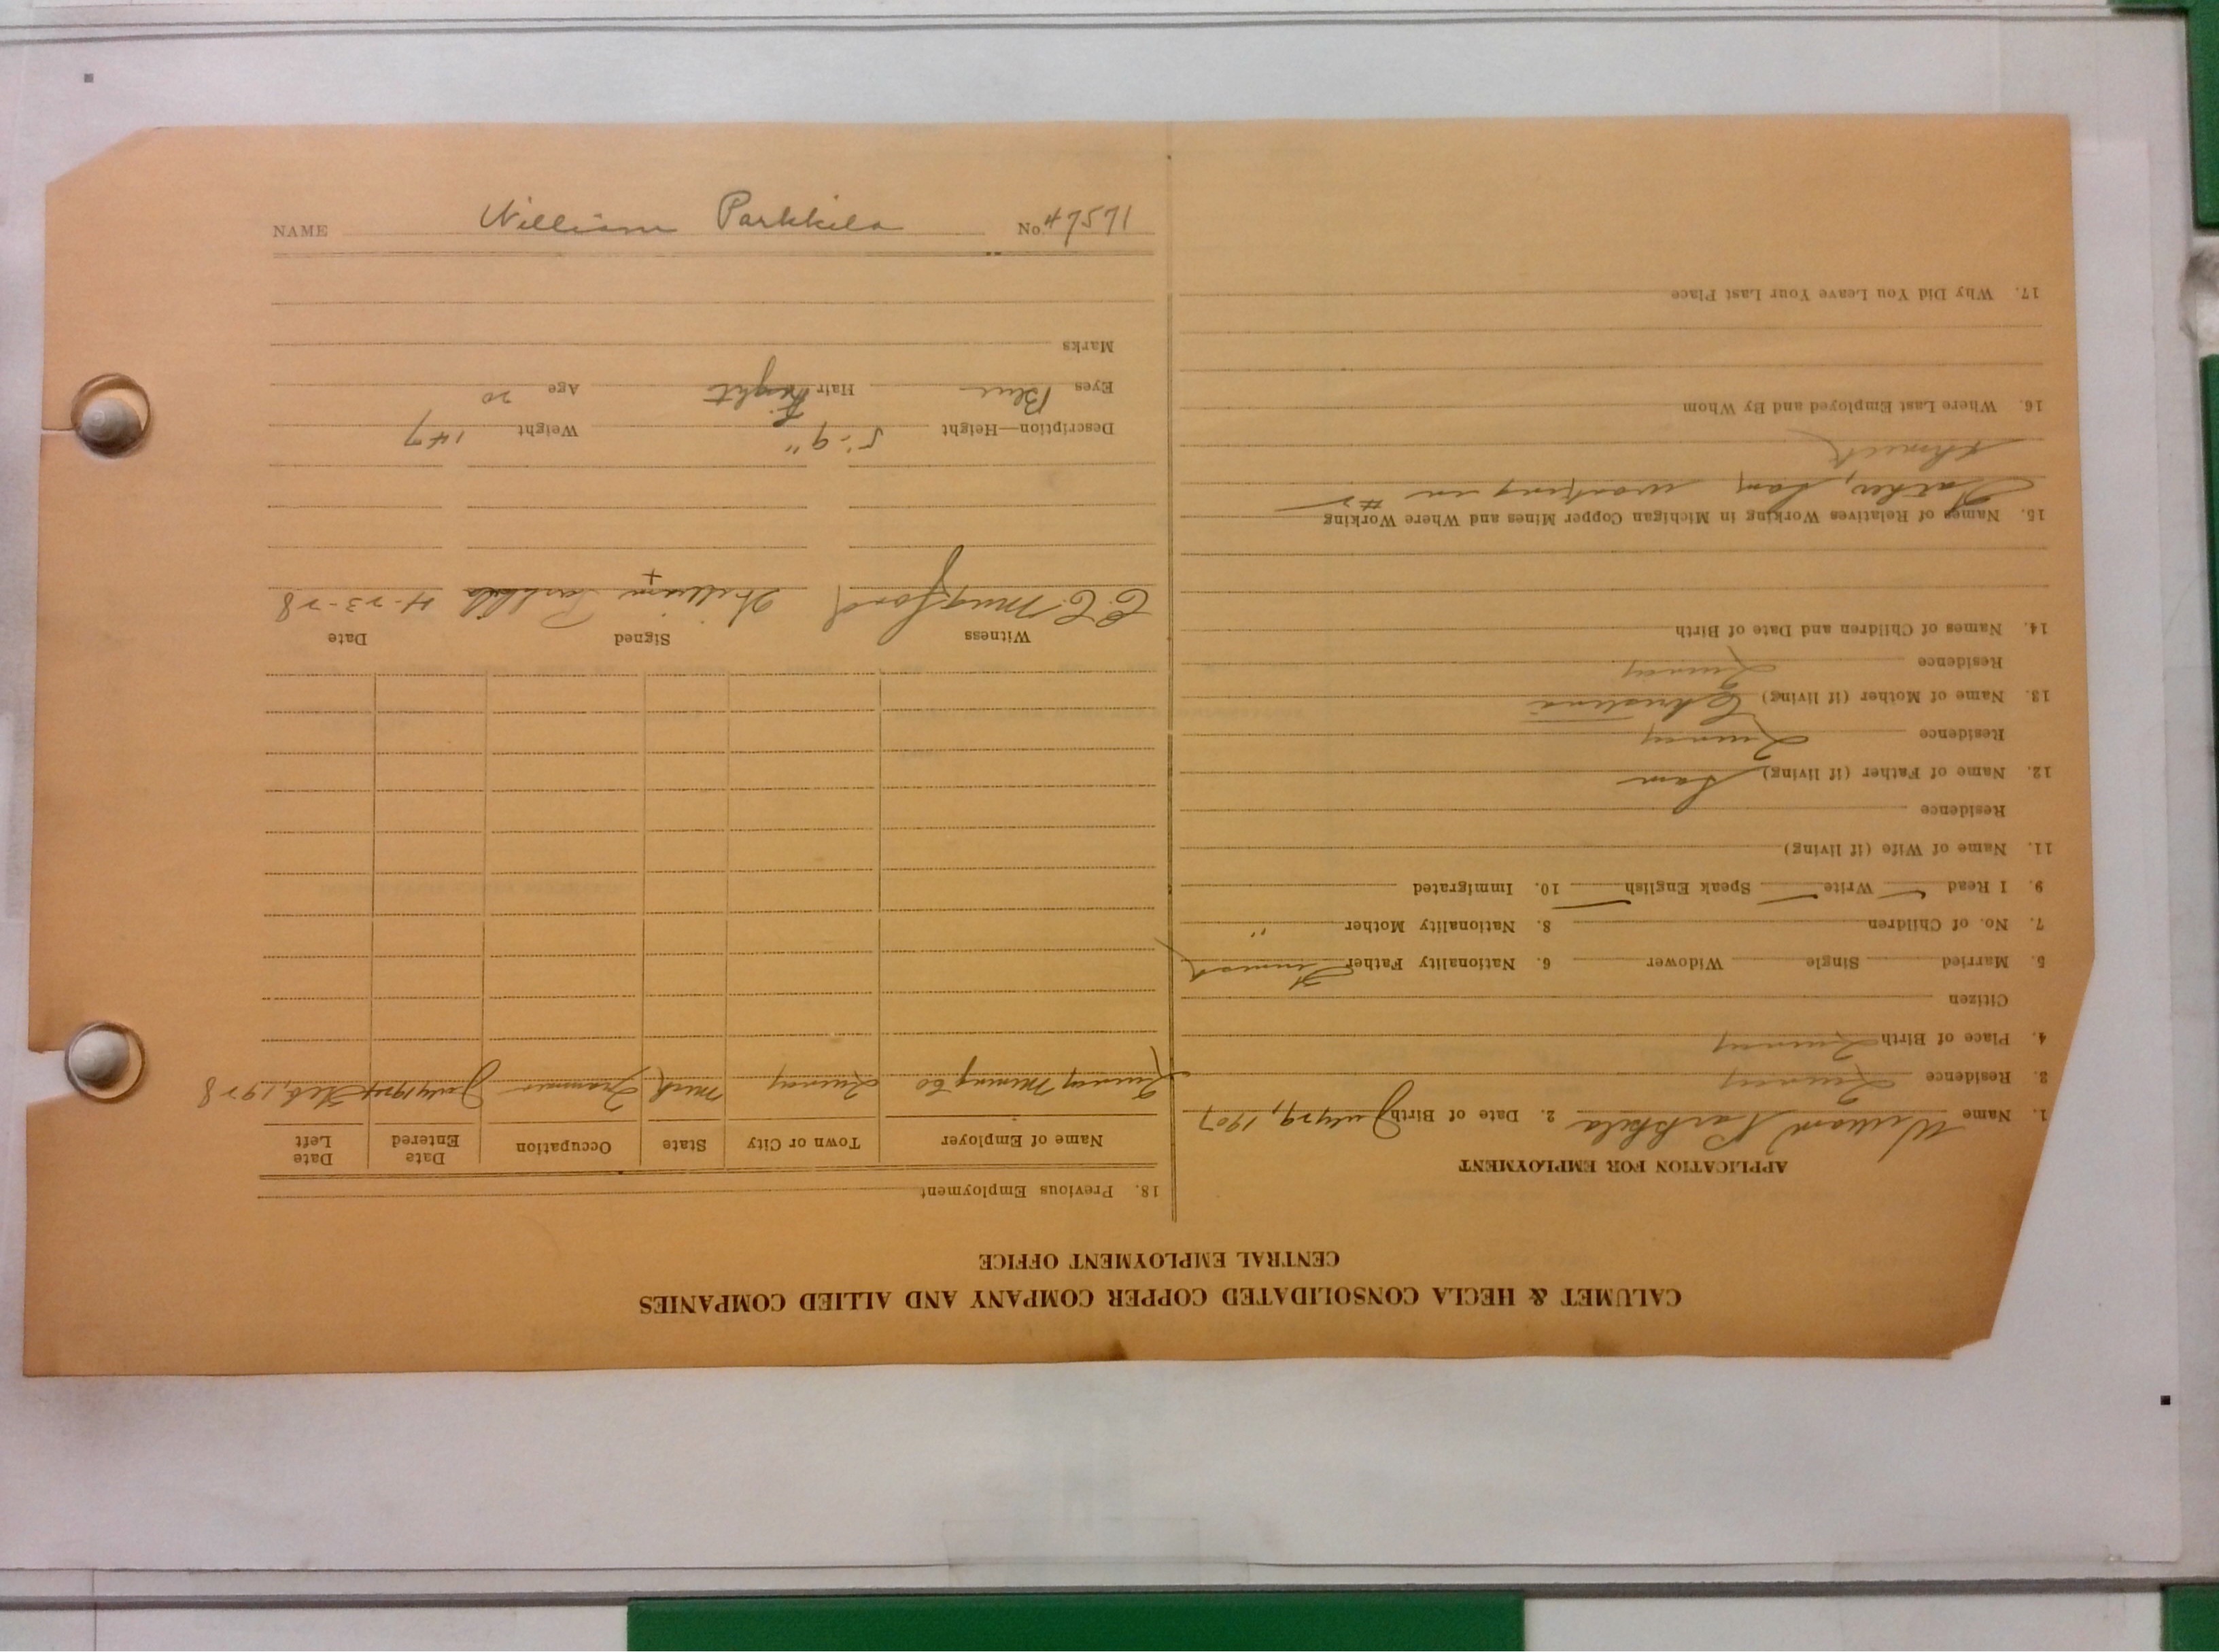 CALUMET & HECLA CONSOLIDATED COPPER COMPANY AND ALLIED COMPANIES
CENTRAL EMPLOYMENT OFFICE
APPLICATION FOR EMPLOYMENT
1. Name William Parkkila 2. Date of Birth July 29, 1907
3. Residence Quincy
4. Place of Birth Quincy
Citizen
5. Married Single Widower 6. Nationality Father Finnish
7. No. of Children 8. Nationality Mother "
9. I Read ✓ Write ✓ Speak English ✓ 10. Immigrated
11. Name of Wife (if living)
Residence
12. Name of Father (if living) Sam
Residence Quincy
13. Name of Mother (if living) Christina
Residence Quincy
14. Names of Children and Date of Birth
15. Names of Relatives Working in Michigan Copper Mines and Where Working
Father, Sam, working in #2
16. Where Last Employed and By Whom
17. Why Did You Leave Your Last Place
18. Previous Employment
Name of Employer Town or City State Occupation Date Entered Date Left
Quincy Mining Co Quincy Mich Trammer July 1924 Feb, 1928
Witness Signed Date
C.C. Mugford William Parkkila 4-23-28
+
Description—Height 5'-9" Weight 147
Eyes Blue Hair Light Age 20
Marks
NAME William Parkkila No 47571